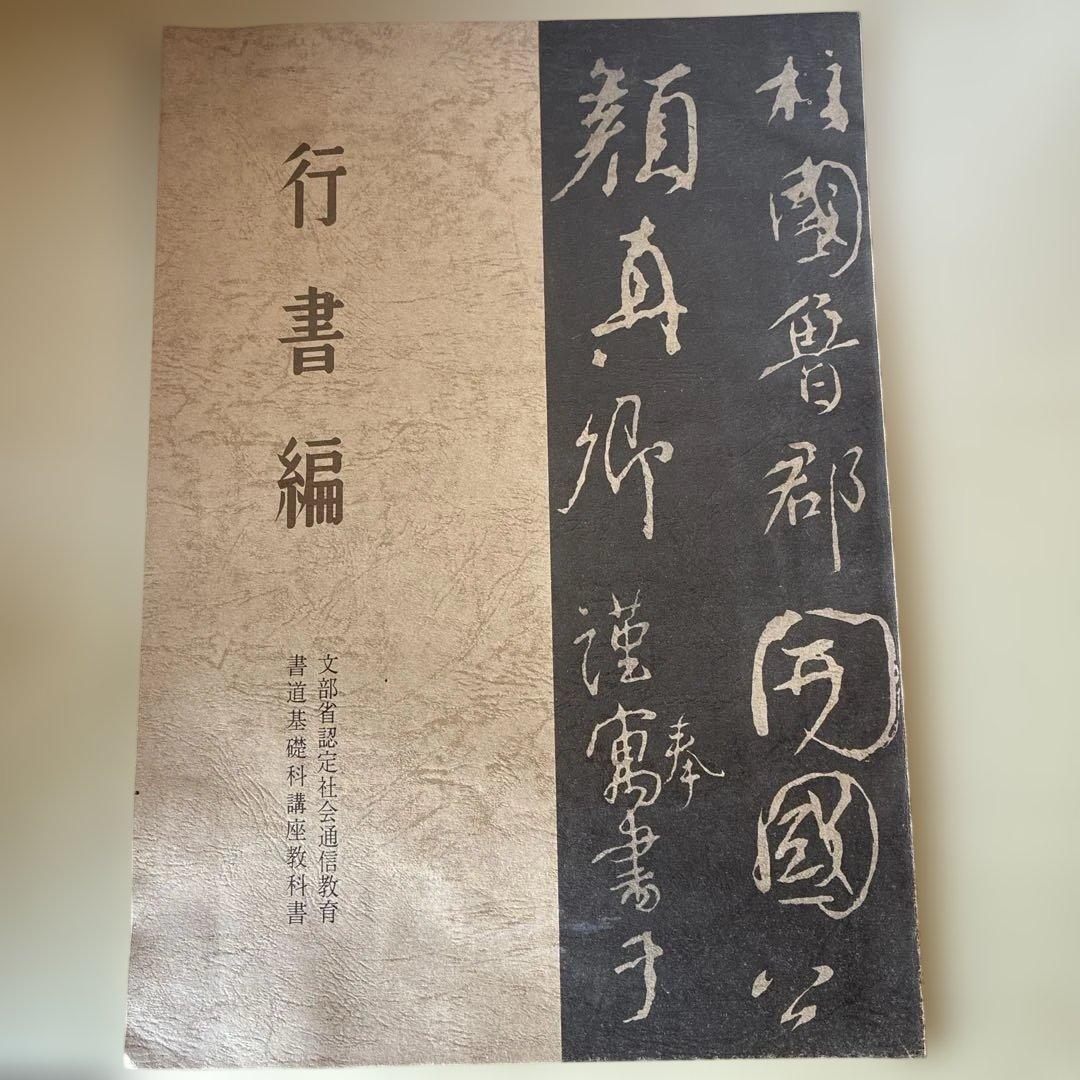 柱國魯郡開國公
顏真卿謹寓書于
奉
行書編
文部省認定社会通信教育
書道基礎科講座教科書